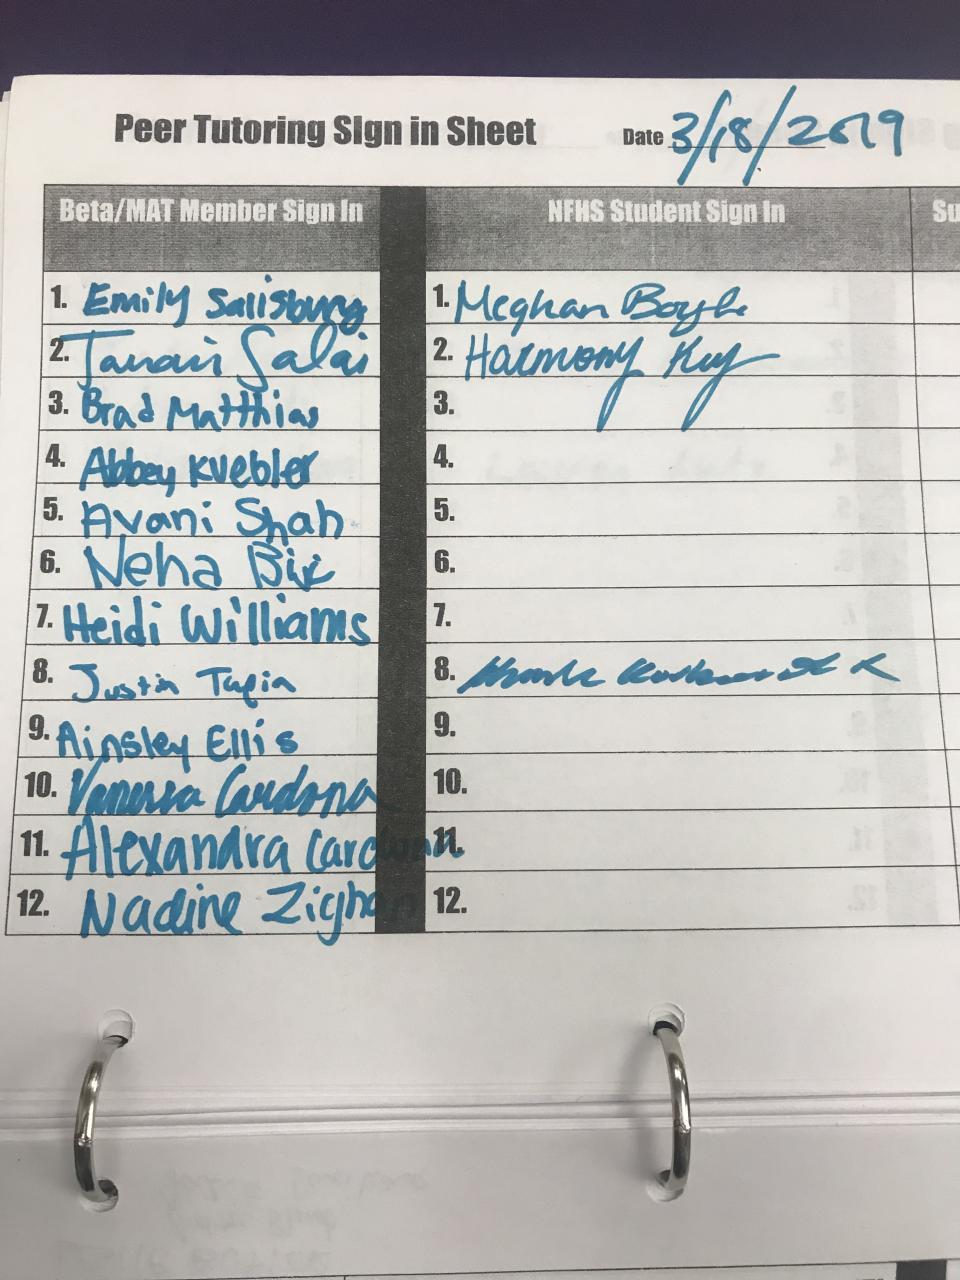 Peer Tutoring Sign in Sheet Date 3/18/2019
Beta/MAT Member Sign In NFHS Student Sign In Su
1. Emily Salisbury 1. Meghan Boyle
2. 2. Harmony
3. Brad Matthias 3.
4. Abbey Kuebler 4.
5. Avani Shah 5.
6. Neha 6.
7. Heidi Williams 7.
8. Justin Tapia 8.
9. Ainsley Ellis 9.
10. Vanessa Cardona 10.
11. Alexandra Cardona 11.
12. Nadine Zighan 12.